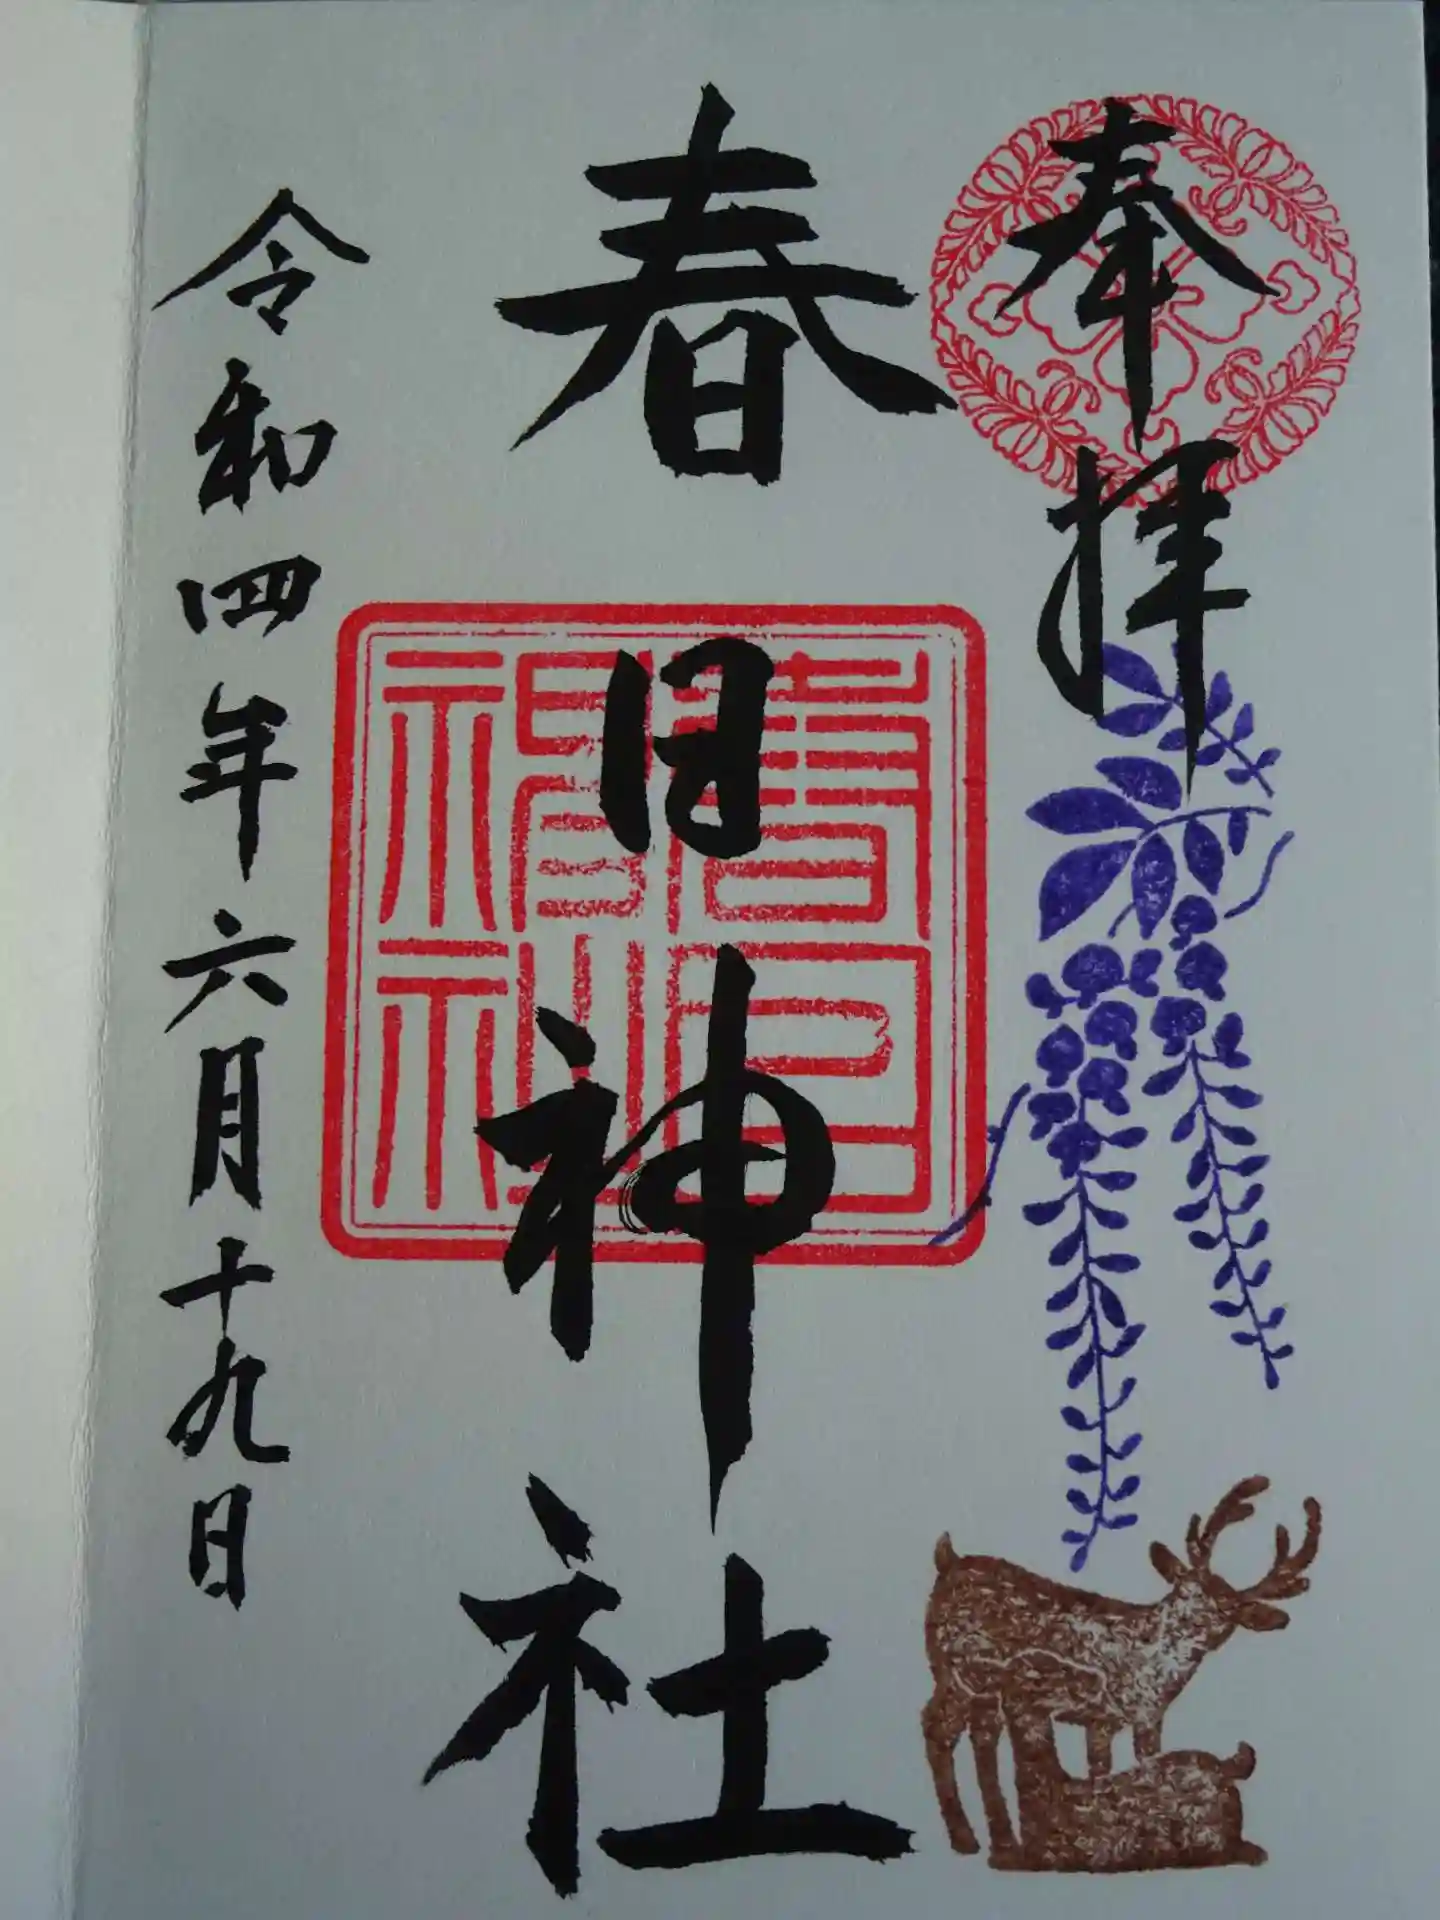 奉拝
春日神社
春日神社
令和四年六月十九日